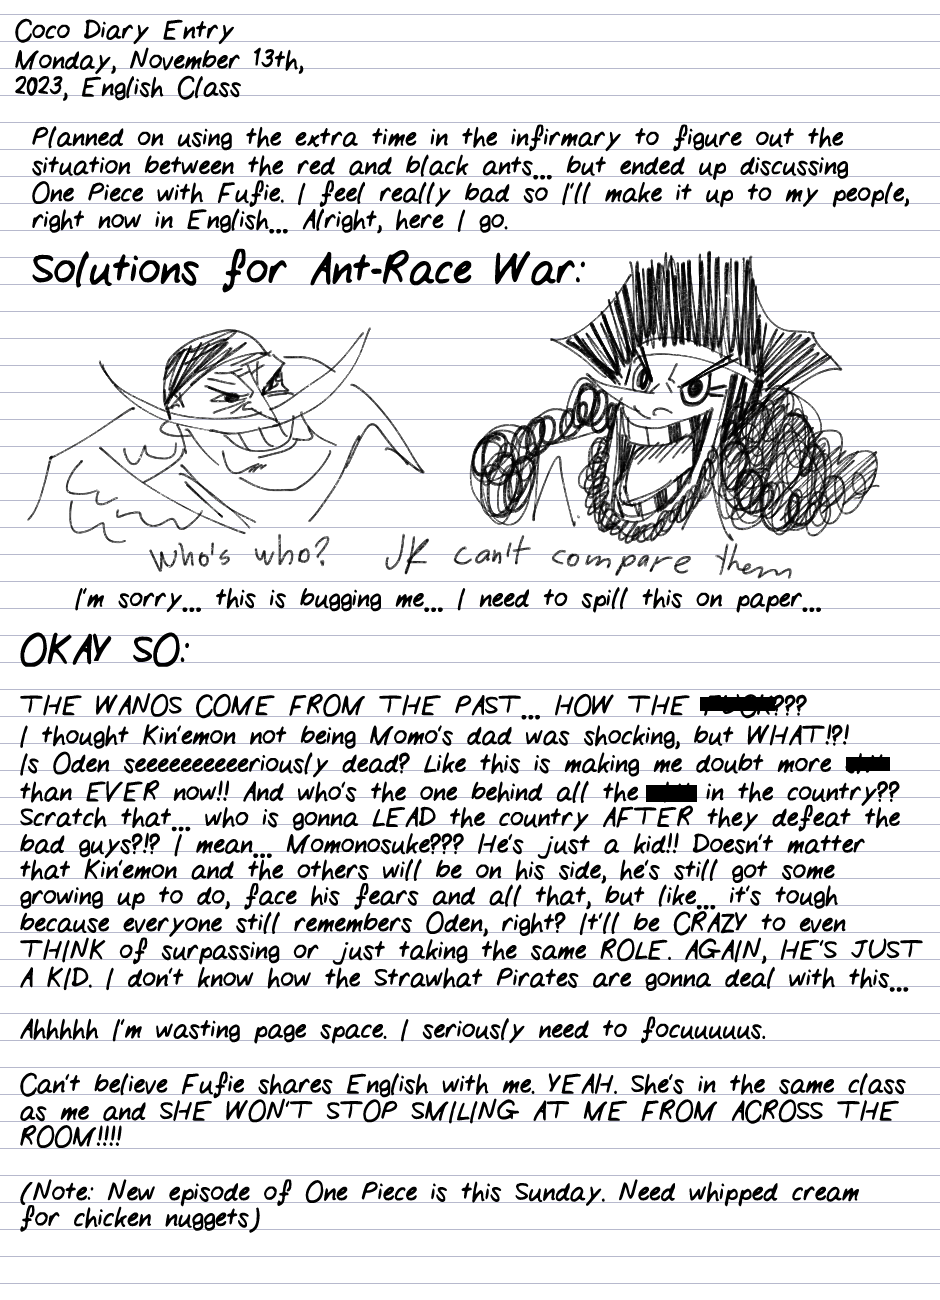 Coco Diary Entry
Monday, November 13th,
2023, English Class
Planned on using the extra time in the infirmary to figure out the
situation between the red and black ants... but ended up discussing
One Piece with Fufie. I feel really bad so I'll make it up to my people,
right now in English... Alright, here I go.
Solutions for Ant-Race War:
Who's who? JK can't compare them
I'm sorry... this is bugging me... I need to spill this on paper...
OKAY SO:
THE WANOS COME FROM THE PAST... HOW THE ???
I thought Kin'emon not being Momo's dad was shocking, but WHAT!?!
Is Oden seeeeeeeeeeriously dead? Like this is making me doubt more
than EVER now!! And who's the one behind all the in the country??
Scratch that... who is gonna LEAD the country AFTER they defeat the
bad guys?!? I mean... Momonosuke??? He's just a kid!! Doesn't matter
that Kin'emon and the others will be on his side, he's still got some
growing up to do, face his fears and all that, but like... it's tough
because everyone still remembers Oden, right? It'll be CRAZY to even
THINK of surpassing or just taking the same ROLE. AGAIN, HE'S JUST
A KID. I don't know how the Strawhat Pirates are gonna deal with this...
Ahhhhh I'm wasting page space. I seriously need to focuuuuus.
Can't believe Fufie shares English with me. YEAH. She's in the same class
as me and SHE WON'T STOP SMILING AT ME FROM ACROSS THE
ROOM!!!!
(Note: New episode of One Piece is this Sunday. Need whipped cream
for chicken nuggets)